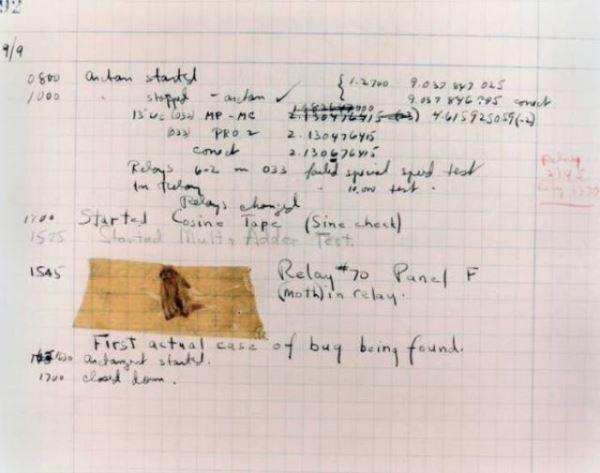 92
9/9
0800 Antan started
1000 " stopped - antan ✓ { 1.2700 9.037 847 025
9.037 846 795 conect
13"uc (032) MP - MC 2.130476415 (-3) 4.615925059(-2)
(033) PRO 2 2.130476415
conect 2.130676415
Relays 6-2 in 033 failed special speed test
in Relay " 10.000 test .
Relays changed
Relay
2145
Relay 3370
1100 Started Cosine Tape (Sine check)
1525 Started Mult + Adder Test.
1545 Relay #70 Panel F
(Moth) in relay.
First actual case of bug being found.
1630 Antangent started.
1700 closed down.